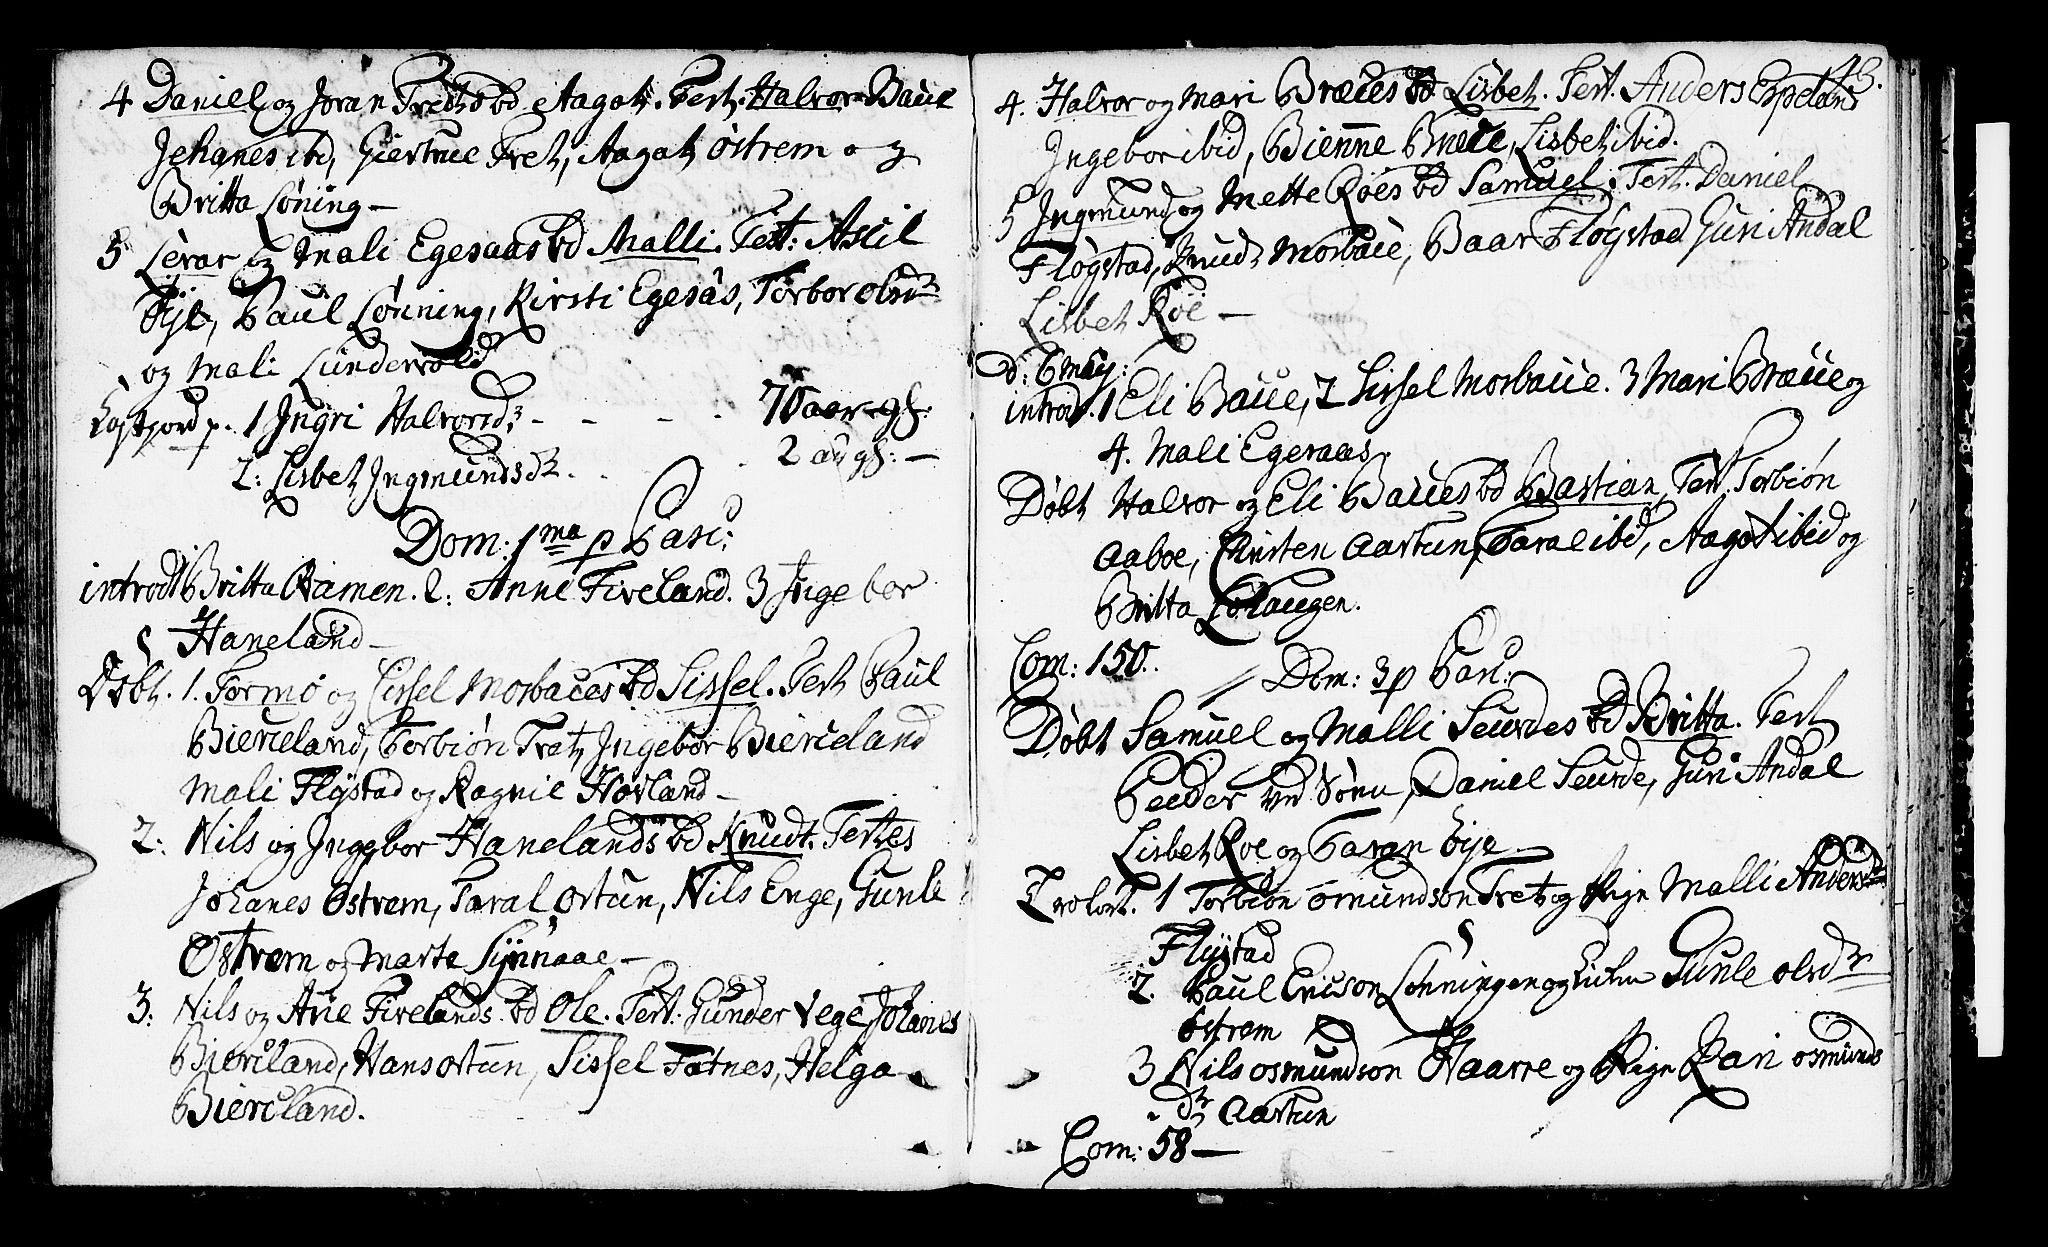 4 Daniel og Joran Fretz bd Aagat. Test. Halvor Baue
Johanes ibd, Giertrue Fret, Aagat Østrem og
Britta Løning -
5 Levar og Mali Egeraas bd Malli. Test: Ascil
Øye, Paul Lønning, Kirsti Egeraas, Torbor olsdr
og Mali Lundevold
Kastjord p. 1 Ingri Halvorsdr - - - 70 aar gl:
2: Lisbet Ingmundsdr. . . 2 au gl: -
Dom: 1ma p Pasc:
introd 1 Britta Ramen. 2: Anne Fiveland. 3 Ingebor
Haneland -
Døbt. 1. Tormo og Cissel Mosbaues bd Sissel. Test Paul
Bierieland, Torbiøn Tratz, Ingebor Bierieland
Mali Flystad og Ragnil Hovland -
2: Nils og Ingebor Hanelands bd Knudt. Testes
Johanes Østrem, Taral Ostun, Nils Enge, Gunle
Østrem og Marte Synnaae -
3: Nils og Ane Fivelands bd Ole. Test. Gunder Vege Johanes
Bierieland, Hans Ostun, Sissel Totnes, Helga
Bierieland.
43.
4. Halvor og Mari Bræues bd Lisbet. Test. Anders Espeland
Ingebor ibid, Bienne Bræue, Lisbet ibid.
5 Ingmund og Mette Roes bd Samuel. Test. Daniel
Fløgstad, Knud Mosbaue, Baar Fløgstad Guri Andal
Lisbet Roe -
d: 6 may:
introd. 1 Eli Baue, 2 Sissel Mosbaue. 3 Mari Bræue og
4. Mali Egeraas.
Døbt Halvor og Eli Baues bd Bastian, Test. Torbiøn
Aaboe, Christen Aartun, Taral ibd, Aagot ibid og
Britta Lohaugen.
Com: 150.
Dom: 3 p Pasc:
Døbt Samuel og Malli Seurdes bd Britta. Test
Peeder ved Søen, Daniel Seurde, Guri Andal
Lisbet Roe og Taran Eije
Trolov. 1 Torbiøn Omundson Tret og Pign Malli Andersdr
Flystad
2. Paul Ericson Lønningen og Gunle olsdr
Østrem
3 Nils Osmundson Haarre og Pign Kari Osmunds
dr Aartun
Com: 58 -